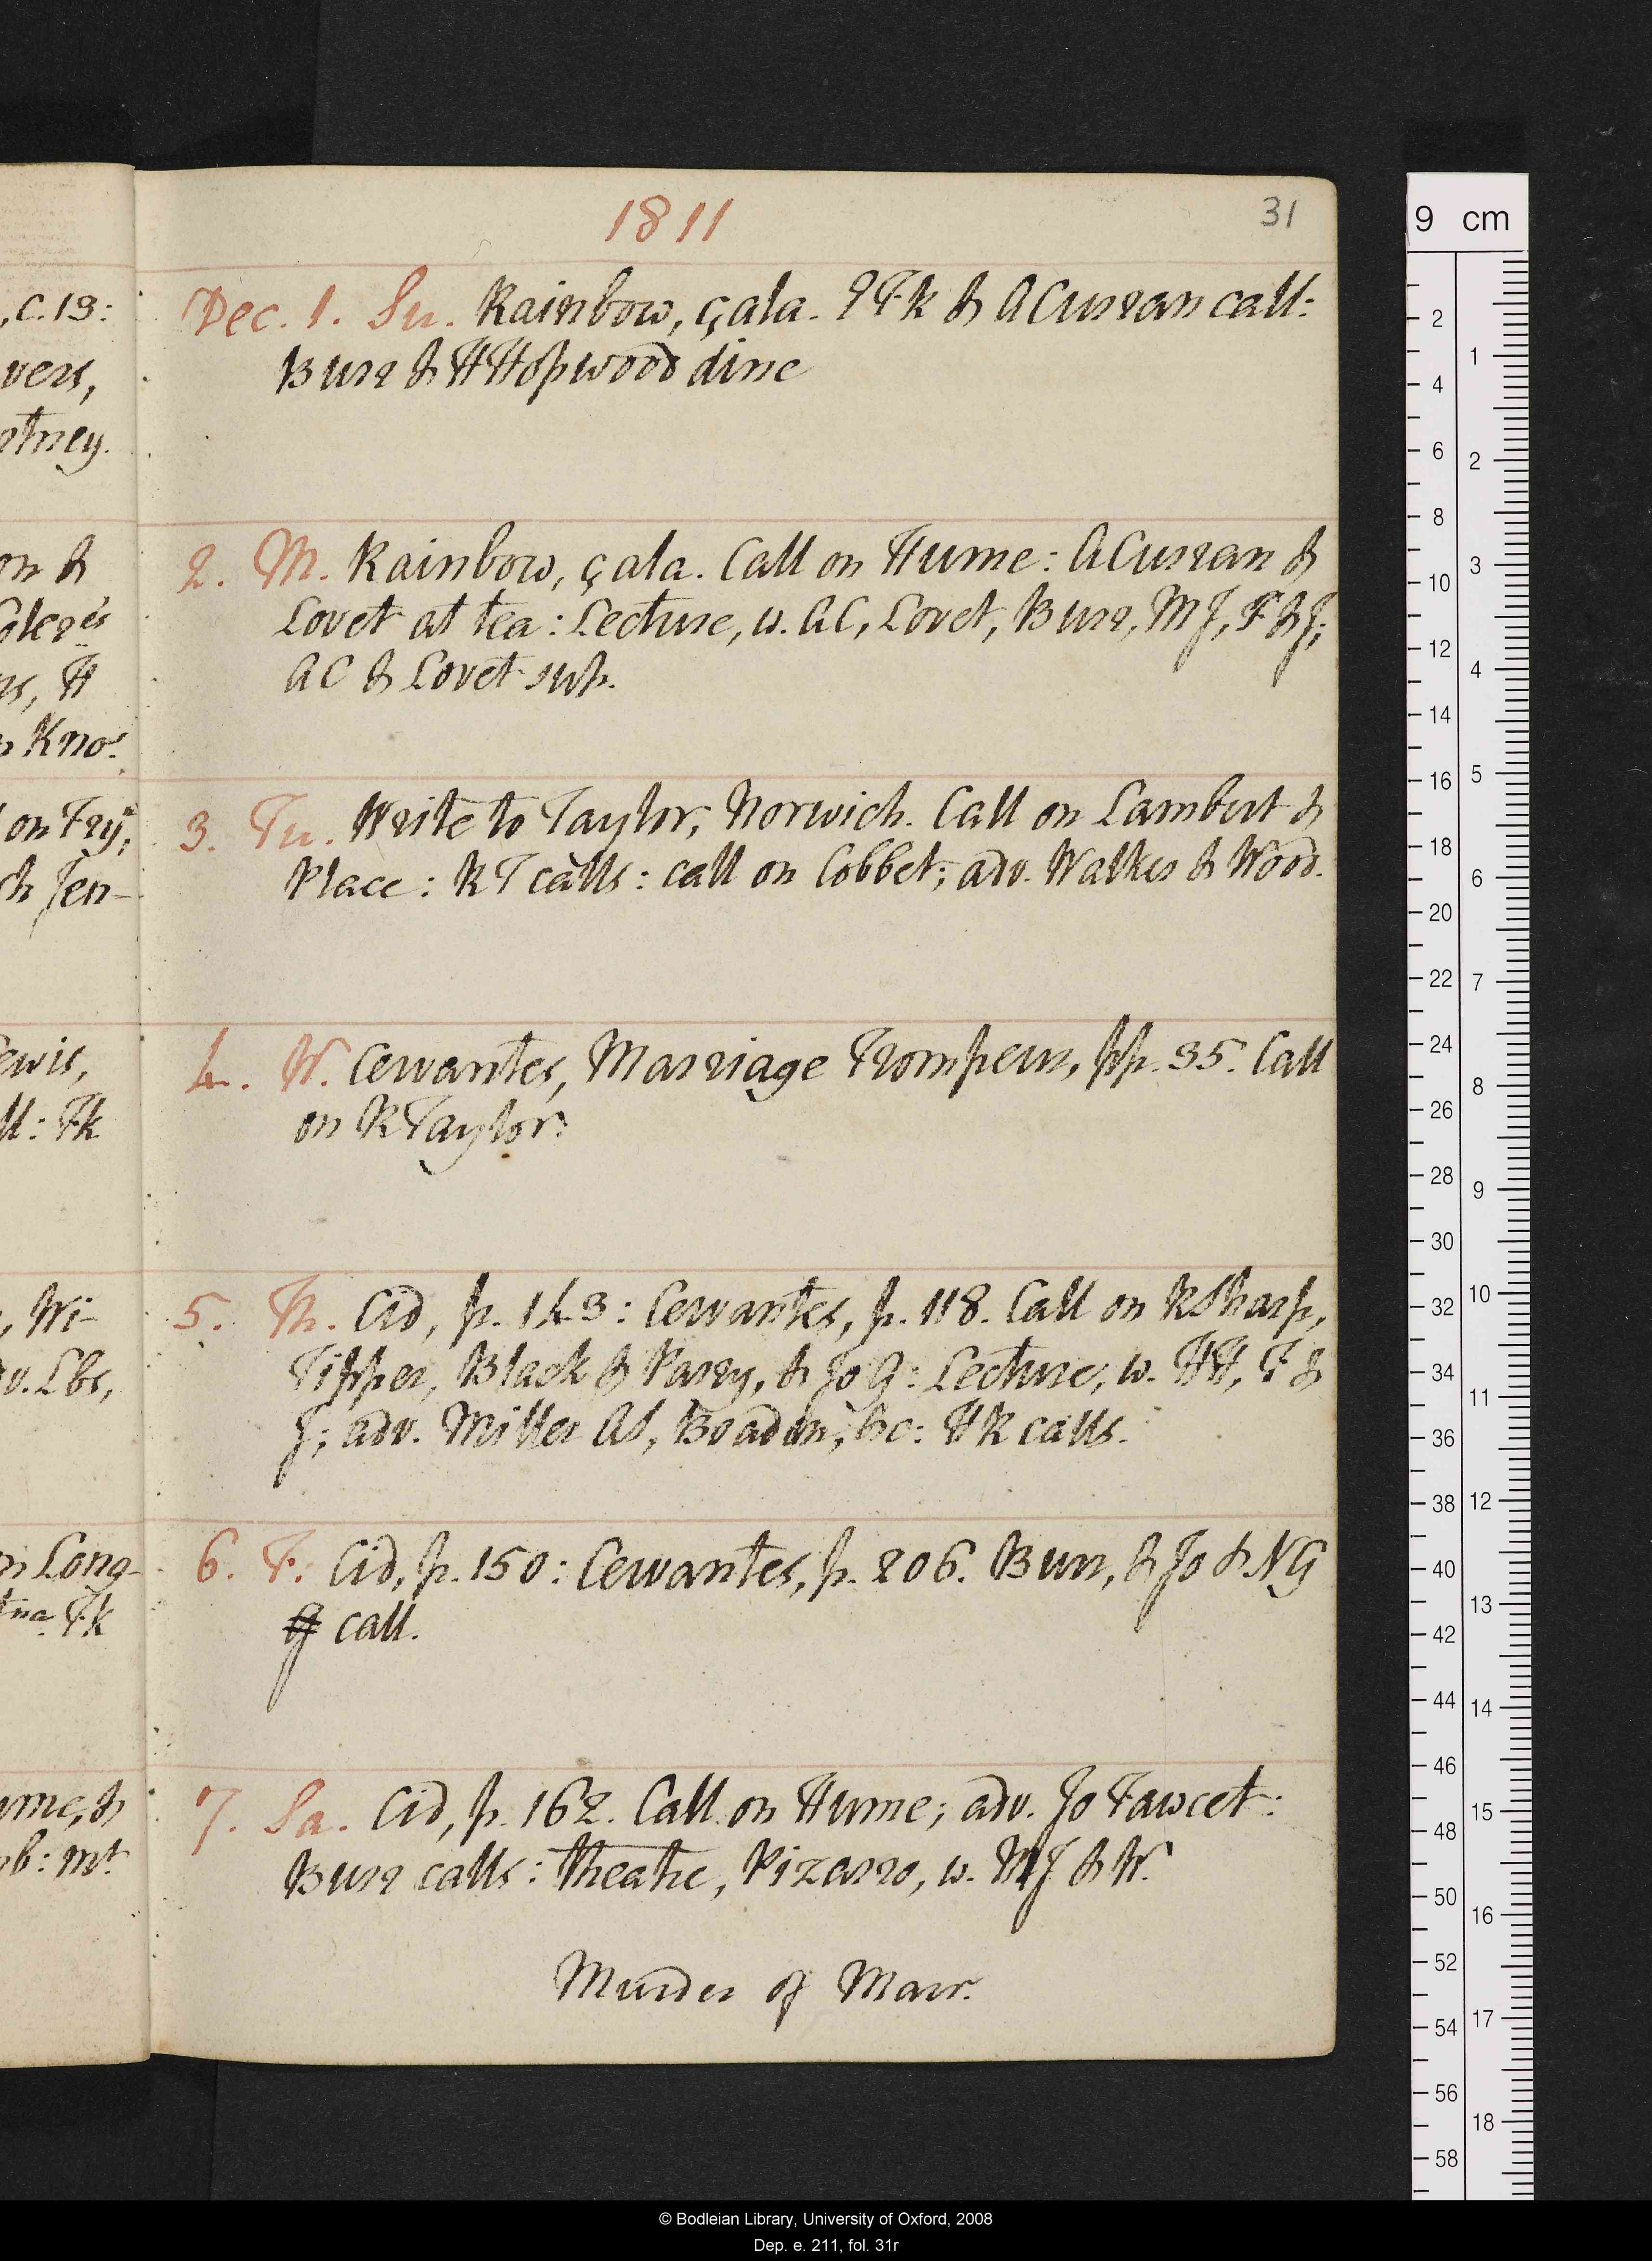 1811
31
Dec. 1. Su. Rainbow, çala. PFk & A Curran call:
Burr & H Hopwood dine
2. M. Rainbow, çala. Call on Hume: A Curran &
Lovet at tea: Lecture, w. AC, Lovet, Burr, MJ, F & J;
AC & Lovet sup.
3. Tu. Write to Taylor, Norwich. Call on Lambert &
Place: RT calls: call on Cobbet; adv. Walker & Wood.
4. W. Cervantes, Marriage Trompeur, pp. 35. Call
on R Taylor:
5. Th. Cid, p. 143: Cervantes, p. 118. Call on R Sharp,
Tipper, Black & Parry, & Jo G: Lecture, w. HH, F &
J; adv. Miller AS, Boaden, &c: HR calls.
6. F. Cid, p. 150: Cervantes, p. 206. Burr, & Jo & NG
G call.
7. Sa. Cid, p. 162. Call on Hume; adv. Jo Fawcet:
Burr calls: Theatre, Pizarro, w. MJ & W.
Murder of Marr.
, C. 19:
vers,
otney.
on &
ns, H
Kno.
on Fry,
ch Jen-
ewis,
ll: Fk
, Wi-
v. Lbs,
n Long-
tua. Fk
ume, &
b: mt
9 cm
2
4
6
8
10
12
14
16
18
20
22
24
26
28
30
32
34
36
38
40
42
44
46
48
50
52
54
56
58
1
2
3
4
5
6
7
8
9
10
11
12
13
14
15
16
17
18
© Bodleian Library, University of Oxford, 2008
Dep. e. 211, fol. 31r